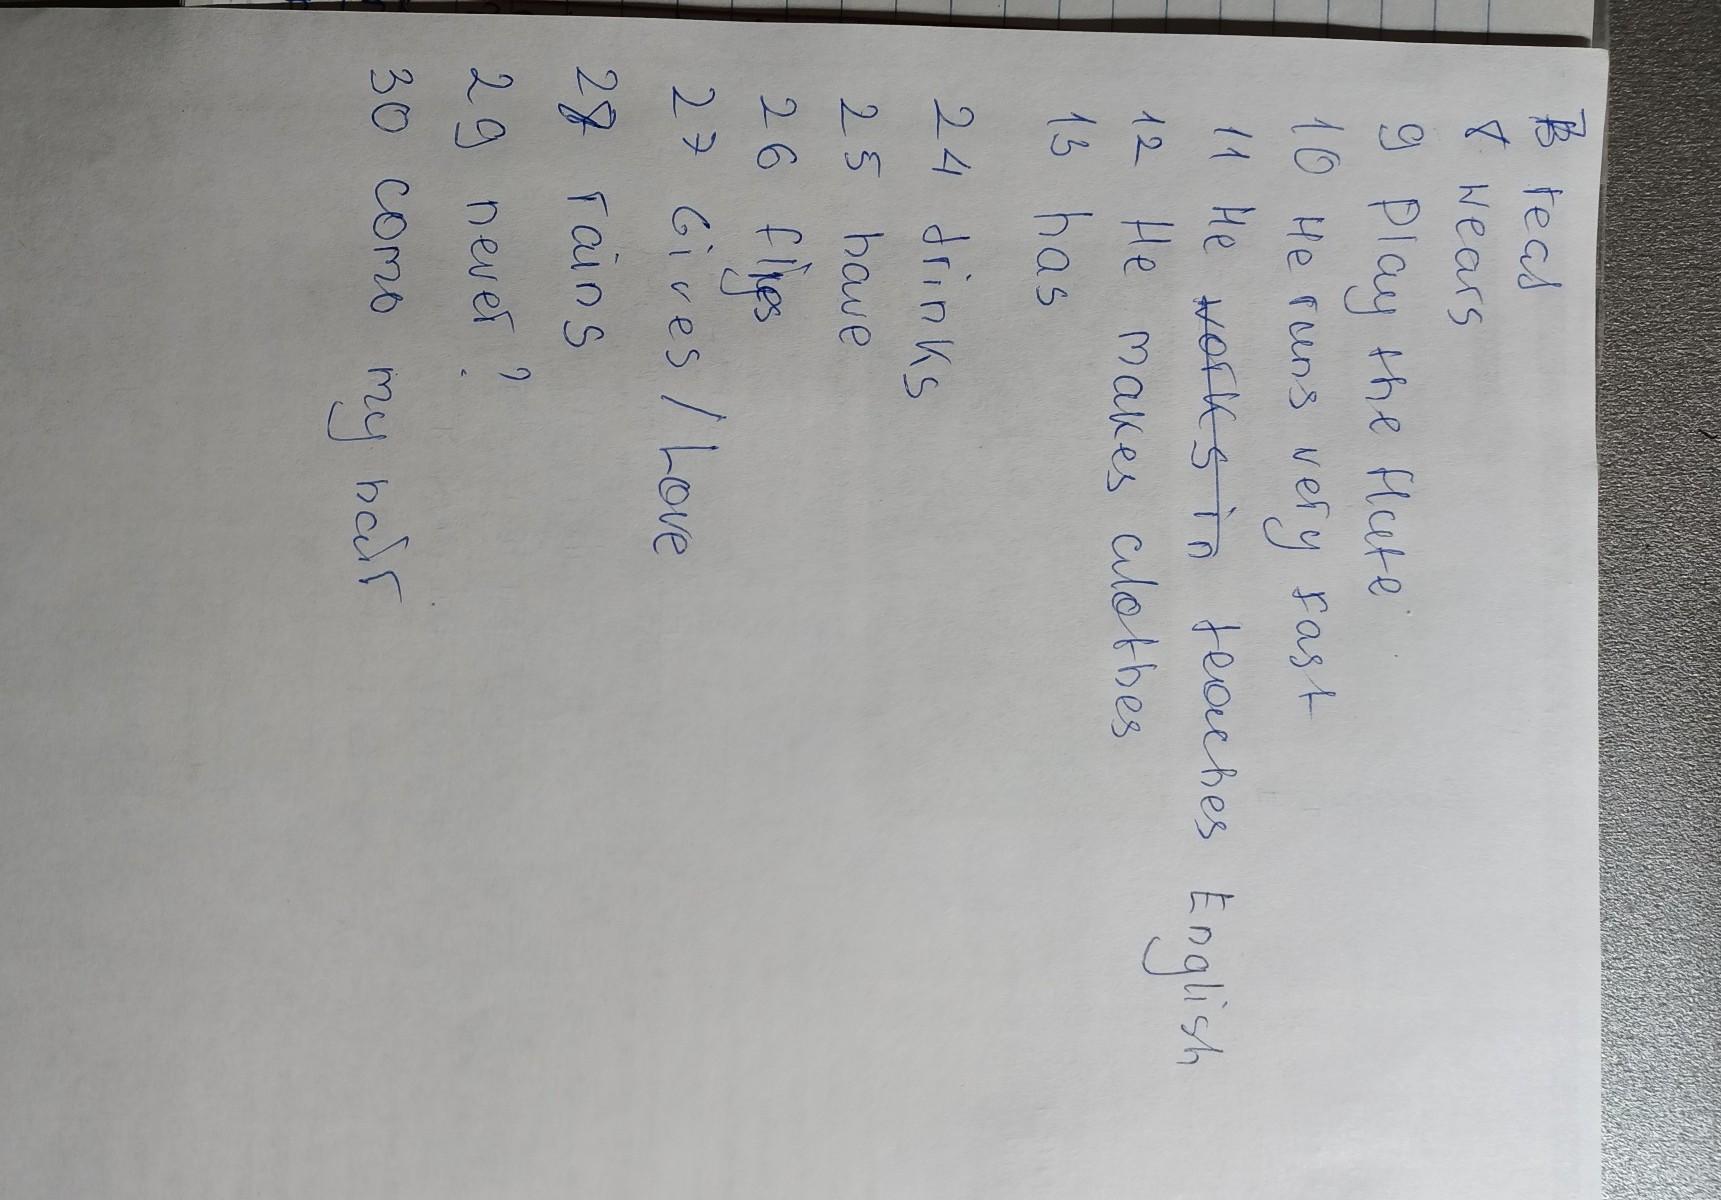 7 read
8 wears
9 Play the flute
10 He runs very fast
11 He works in teaches English
12 He makes clothes
13 has
24 drinks
25 have
26 flies
27 Gives / Love
28 rains
29 never?
30 comb my hair